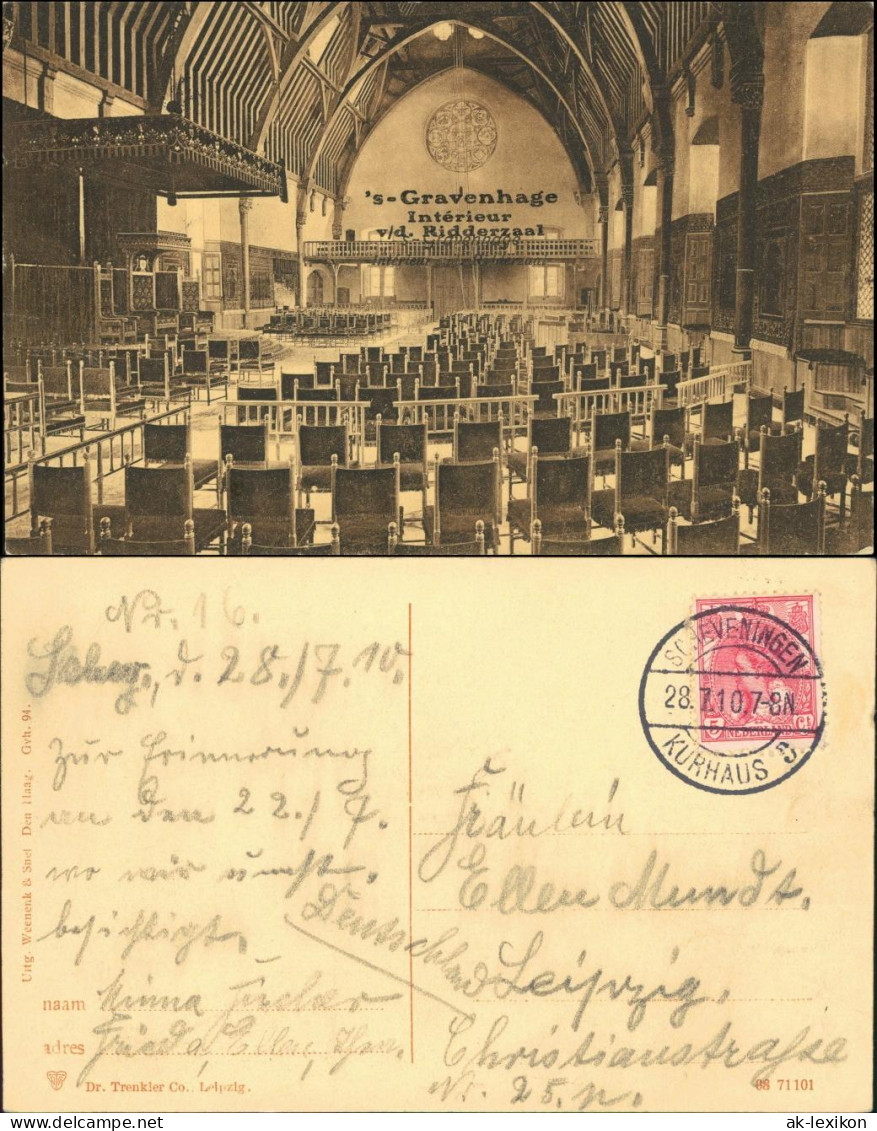 's-Gravenhage
Intérieur
v/d. Ridderzaal
Nr. 16.
Schev., d. 28./7.10.
Zur Erinnerung
an den 22./7.
wo wir umst.
besichtigt.
naam Minna
adres Ellen
Uitg. Weenenk & Snel Den Haag. Gvh. 94.
Dr. Trenkler Co., Leipzig.
SCHEVENINGEN
28.7.10.7-8N.
KURHAUS
5 Ct
NEDERLAND
Fräulein
Ellen Mundt.
Leipzig.
Deutschland
Christianstraße
Nr. 25.
08 71101
ak-lexikon